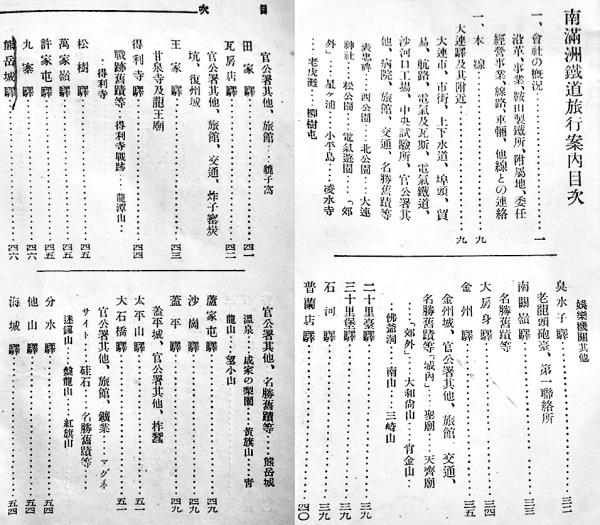 南滿洲鐵道旅行案内目次
一、會社の概況……一
沿革、事業、鞍山製鐵所、附屬地、委任
經營事業、線路、車輛、他線との連絡
一、本線……九
大連驛及其附近……九
大連市、市街、上下水道、埠頭、貿
易、航路、電氣及瓦斯、電氣鐵道、
沙河口工場、中央試驗所、官公署其
他、病院、旅館、交通、名勝舊蹟等
表忠碑…西公園…北公園…大連
神社…松公園…電氣遊園…「郊
外」…星ヶ浦…小平島…凌水寺
…老虎灘…柳樹屯
娛樂機關其他
臭水子驛……三二
老龍頭砲臺、第一聯絡所
南關嶺驛……三三
名勝舊蹟等
大房身驛……三四
金州驛……三五
金州城、官公署其他、旅館、交通、
名勝舊蹟等「城内」…聖廟…天齊廟
…「郊外」…大和尚山…肖金山
…佛爺洞…南山…三崎山
二十里臺驛……三九
三十里堡驛……三九
石河驛……三九
普蘭店驛……四〇
目次
官公署其他、旅館…貔子窩
田家驛……四一
瓦房店驛……四二
官公署其他、旅館、交通、炸子窰炭
坑、復州城
王家驛……四三
甘泉寺及龍王廟
得利寺驛……四四
戰跡舊蹟等…得利寺戰跡…龍潭山…
…得利寺
松樹驛……四五
萬家嶺驛……四五
許家屯驛……四五
九寨驛……四六
熊岳城驛……四六
官公署其他、名勝舊蹟等…熊岳城
溫泉…成家の梨園…黃旗山…青
龍山…望小山
蘆家屯驛……四九
沙崗驛……四九
蓋平驛……四九
蓋平城、官公署其他、柞蠶
太平山驛……五一
大石橋驛……五一
官公署其他、旅館、鑛業…マグネ
サイト…硅石…名勝舊蹟等
迷鎭山…盤龍山…紅旗山
分水驛……五四
他山驛……五四
海城驛……五四